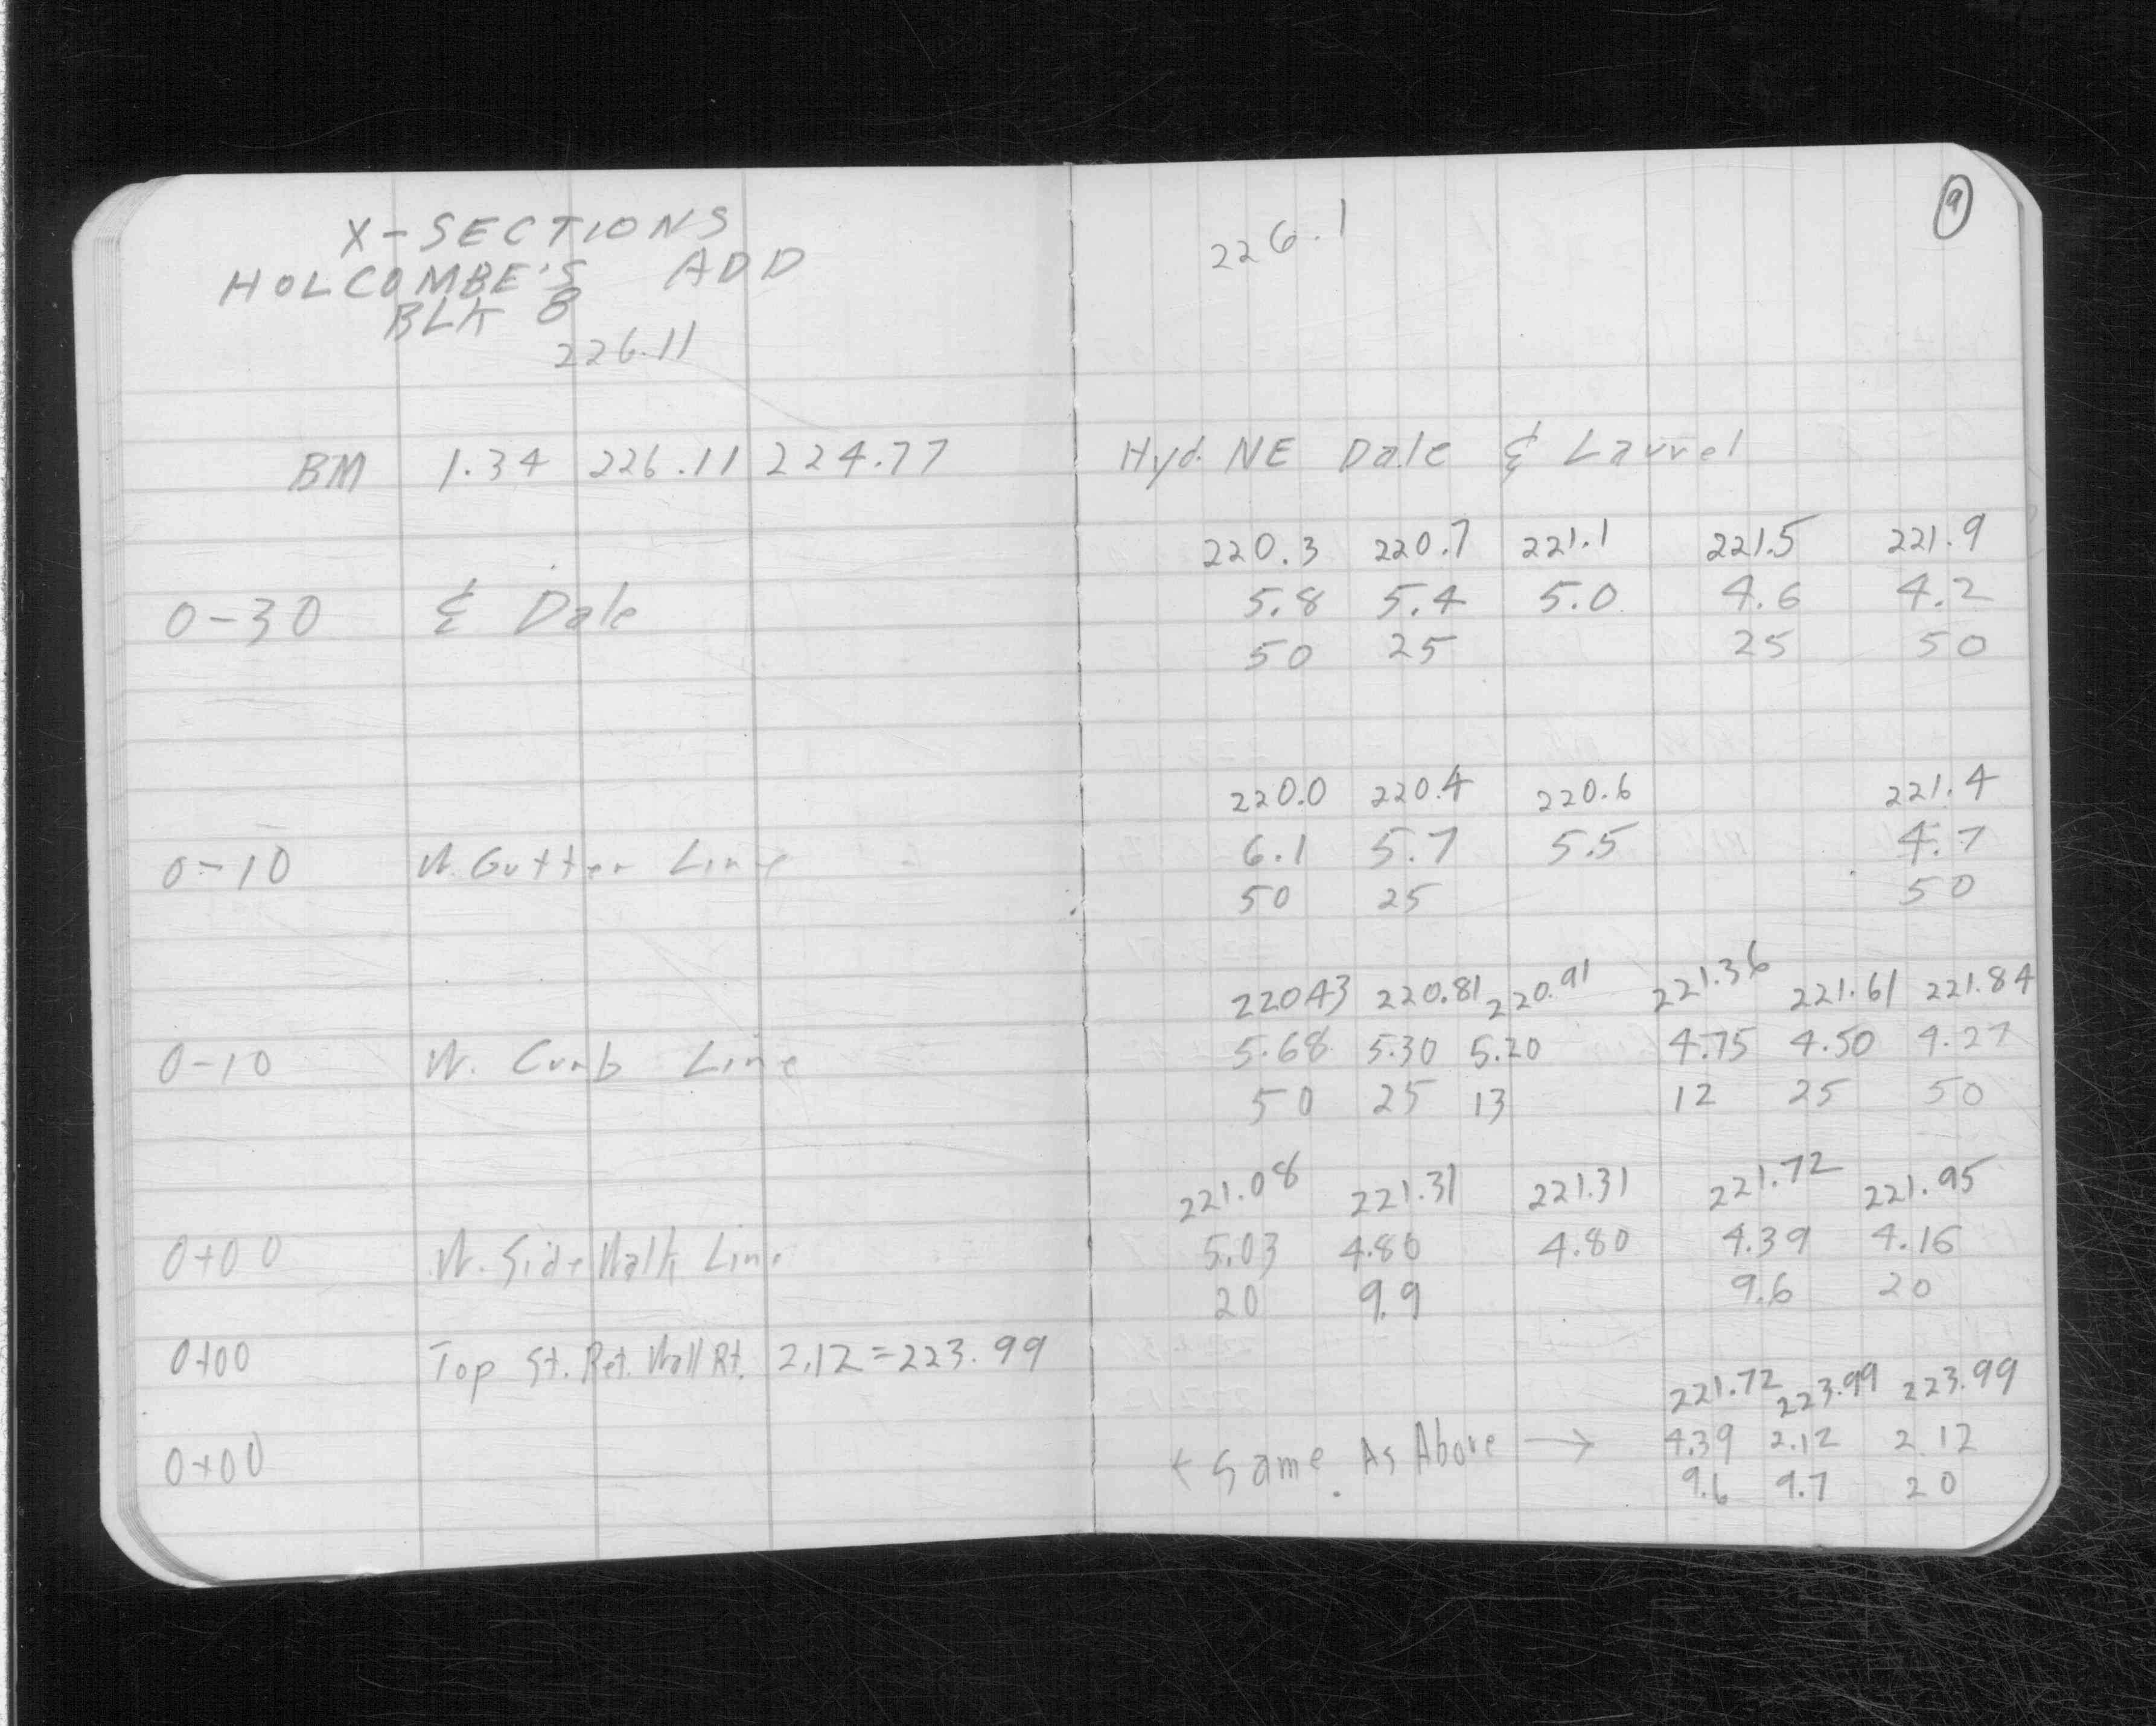 X-SECTIONS
HOLCOMBE'S ADD
BLK 8
226.11
BM 1.34 226.11 224.77
0-30 ℄ Dale
0-10 W. Gutter Line
0-10 W. Curb Line
0+00 W. Side Walk Line
0+00 Top St. Ret. Wall Rt. 2.12=223.99
0+00
9
226.1
Hyd. NE Dale & Laurel
220.3 220.7 221.1 221.5 221.9
5.8 5.4 5.0 4.6 4.2
50 25 25 50
220.0 220.4 220.6 221.4
6.1 5.7 5.5 4.7
50 25 50
220.43 220.81 220.91 221.36 221.61 221.84
5.68 5.30 5.20 4.75 4.50 4.27
50 25 13 12 25 50
221.08 221.31 221.31 221.72 221.95
5.03 4.80 4.80 4.39 4.16
20 9.9 9.6 20
221.72 223.99 223.99
← Same As Above → 4.39 2.12 2.12
9.6 9.7 20